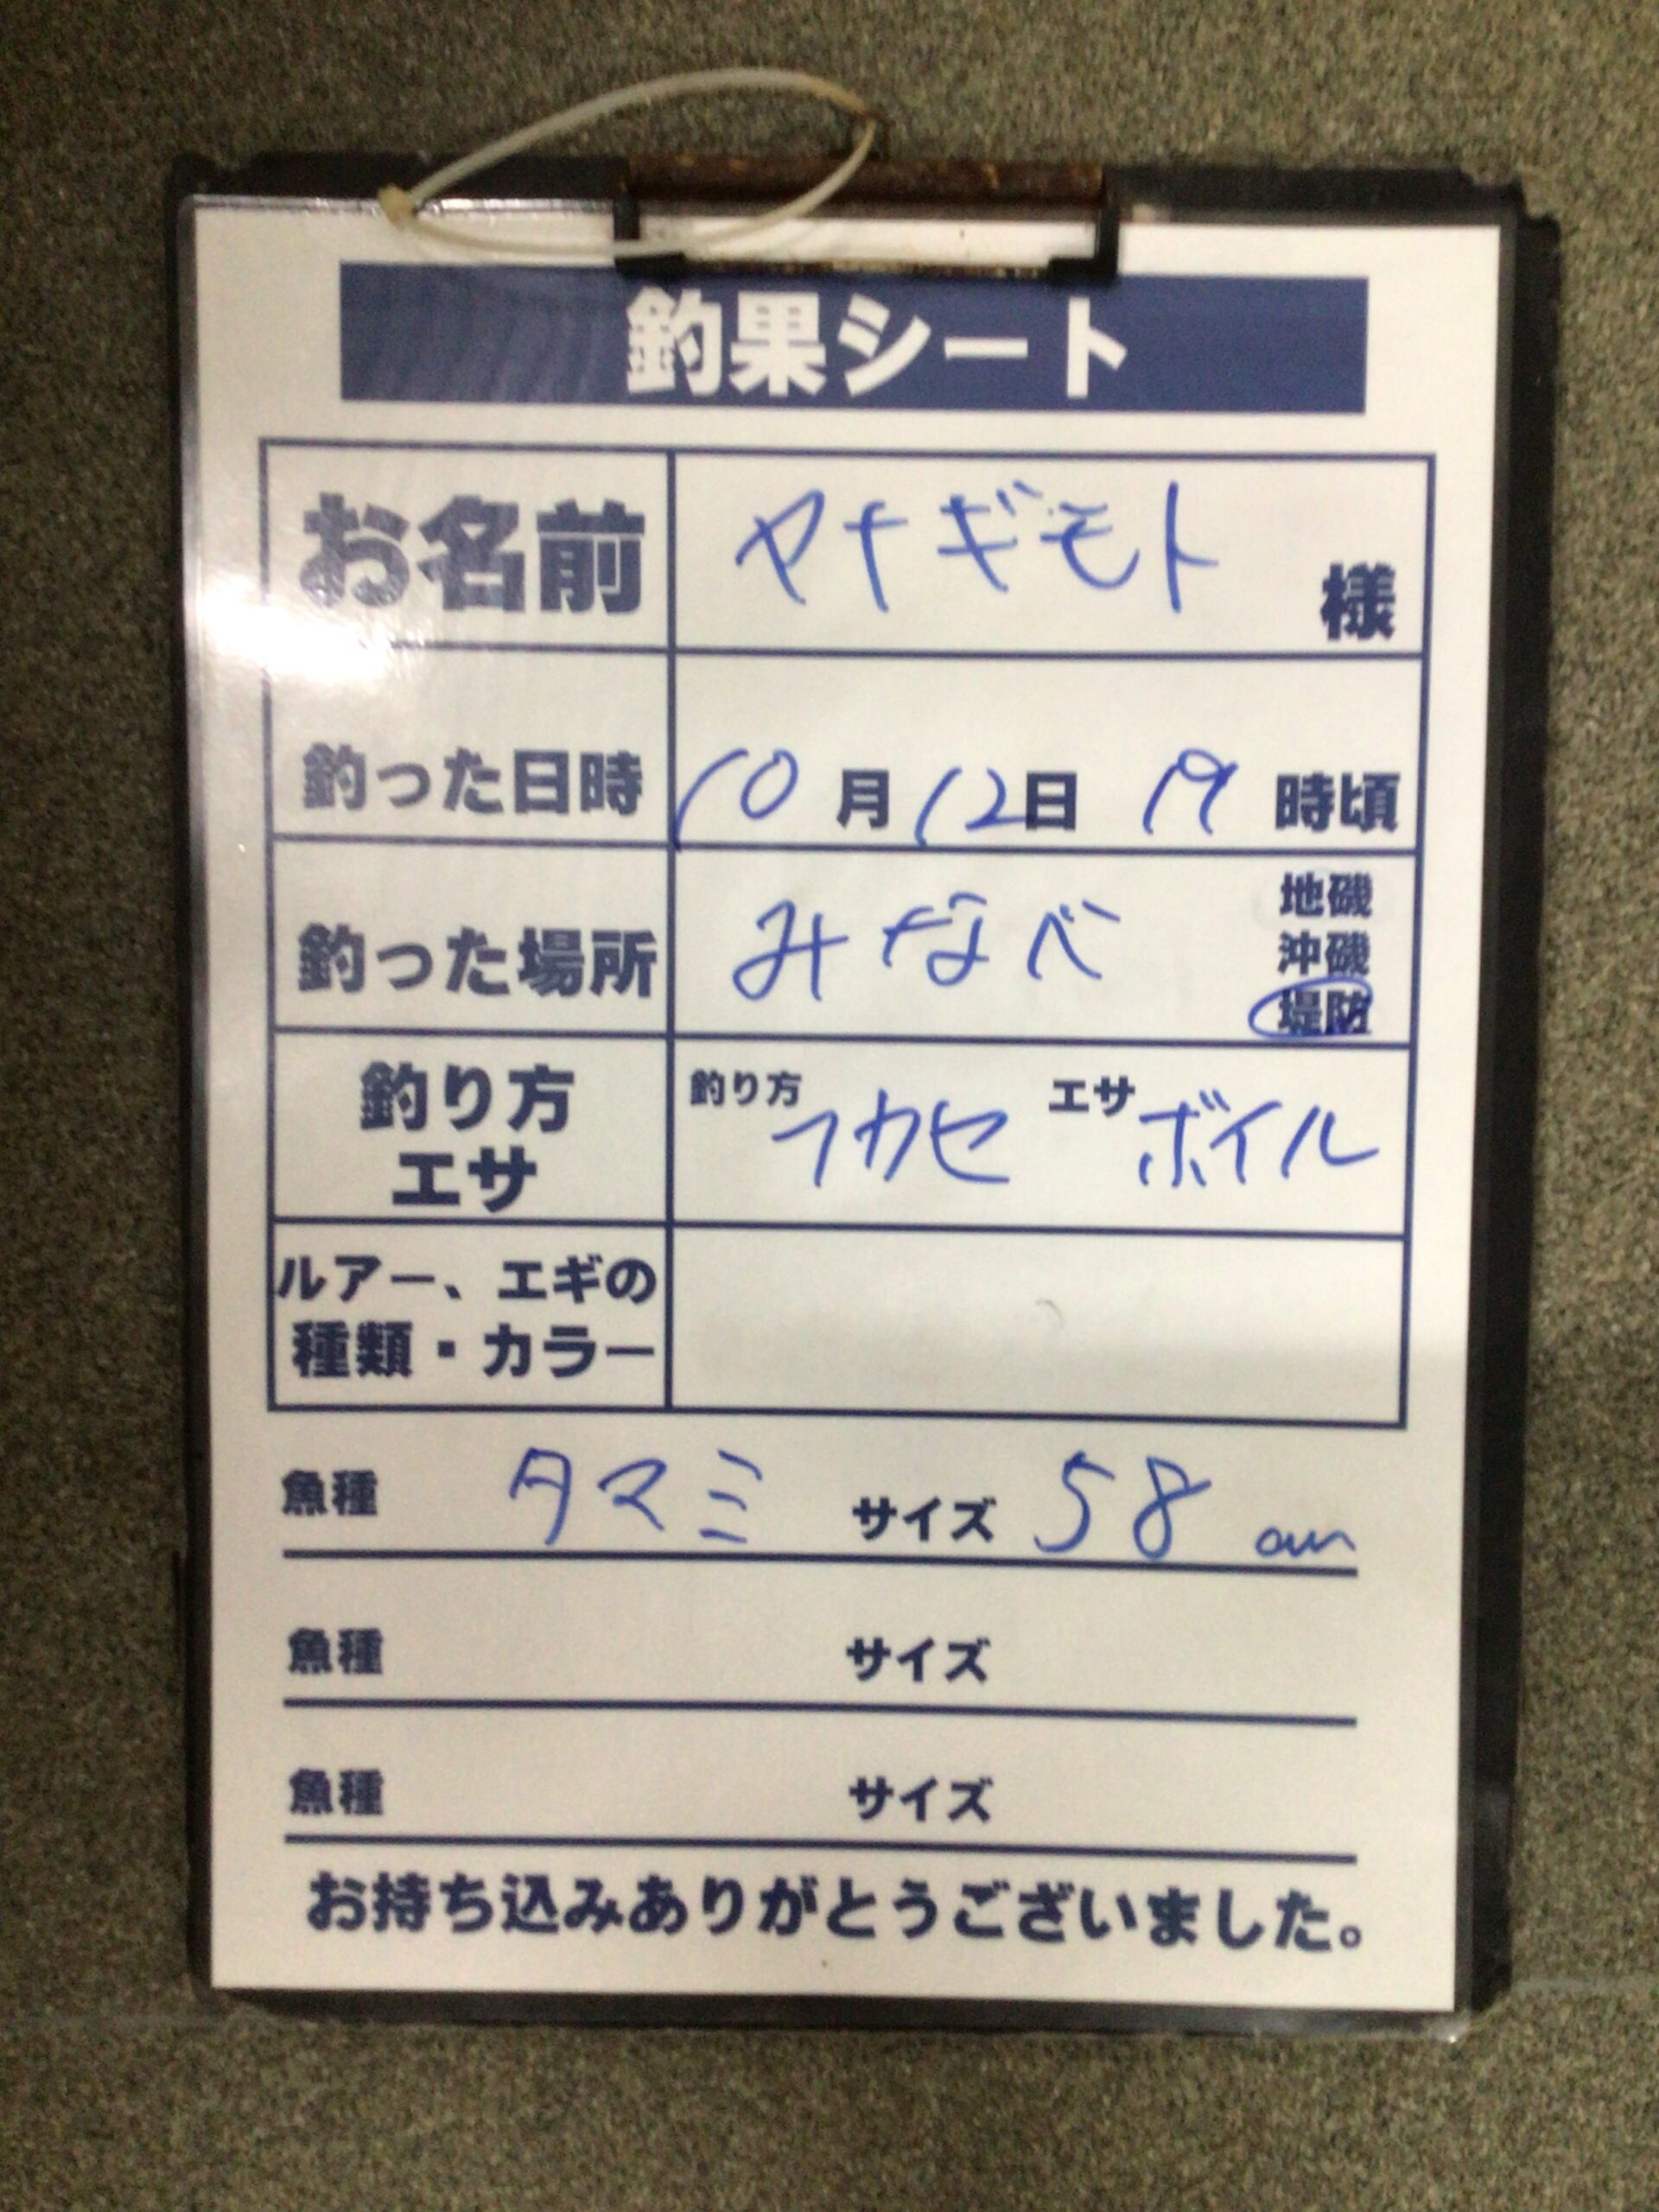 釣果シート
お名前 ヤナギモト 様
釣った日時 10月12日 19時頃
釣った場所 みなべ
地磯
沖磯
堤防
釣り方
エサ
釣り方 フカセ エサ ボイル
ルアー、エギの
種類・カラー
魚種 タマミ サイズ 58 cm
魚種 サイズ
魚種 サイズ
お持ち込みありがとうございました。